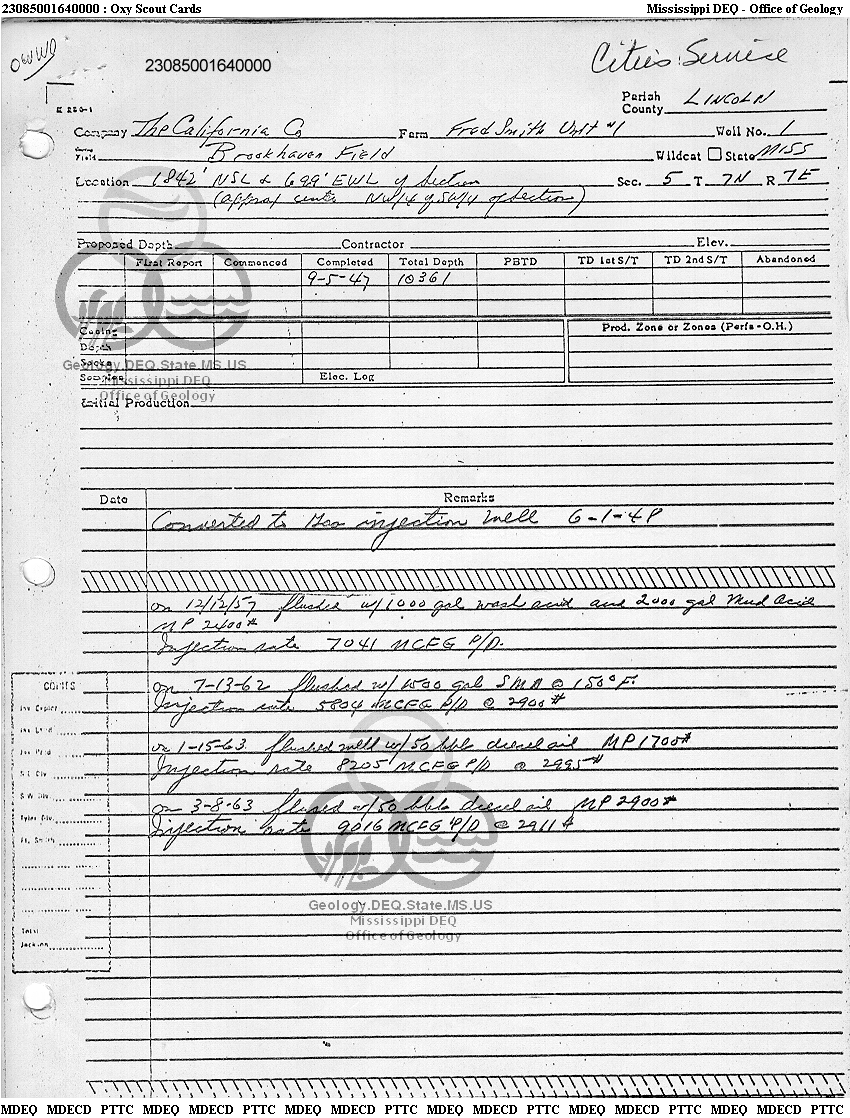 23085001640000 : Oxy Scout Cards Mississippi DEQ - Office of Geology
23085001640000
Cities Service
Parish
County LINCOLN
Company The California Co Farm Fred Smith Unit #1 Well No. 1
Field Brookhaven Field Wildcat State MISS
Location 1842' NSL & 699' EWL of Section Sec. 5 T 7N R 7E
(approx center NW/4 of SW/4 of Section)
Proposed Depth Contractor Elev.
First Report Commenced Completed Total Depth PBTD TD 1st S/T TD 2nd S/T Abandoned
9-5-47 10361
Casing Prod. Zone or Zones (Perfs-O.H.)
Depth
Sacks
Geology.DEQ.State.MS.US
Elec. Log
Mississippi DEQ
Office of Geology
Initial Production
Date Remarks
Converted to Gas injection well 6-1-48
on 12/12/57 flushed w/1000 gal wash acid and 2000 gal Mud Acid
MP 2400#
Injection rate 7041 MCFG P/D.
COPIES
on 7-13-62 flushed w/ 1500 gal SMA @ 150° F.
Injection rate 5804 MCFG P/D @ 2900#
on 1-15-63 flushed well w/50 bbls diesel oil MP 1700#
Injection rate 8205 MCFG P/D @ 2995#
on 3-8-63 flused w/50 bbls diesel oil MP 2900#
Injection rate 9016 MCFG P/D @ 2911#
Ft. Smith
Total
Jackson
Geology.DEQ.State.MS.US
Mississippi DEQ
Office of Geology
MDEQ MDECD PTTC MDEQ MDECD PTTC MDEQ MDECD PTTC MDEQ MDECD PTTC MDEQ MDECD PTTC MDEQ MDECD PTTC